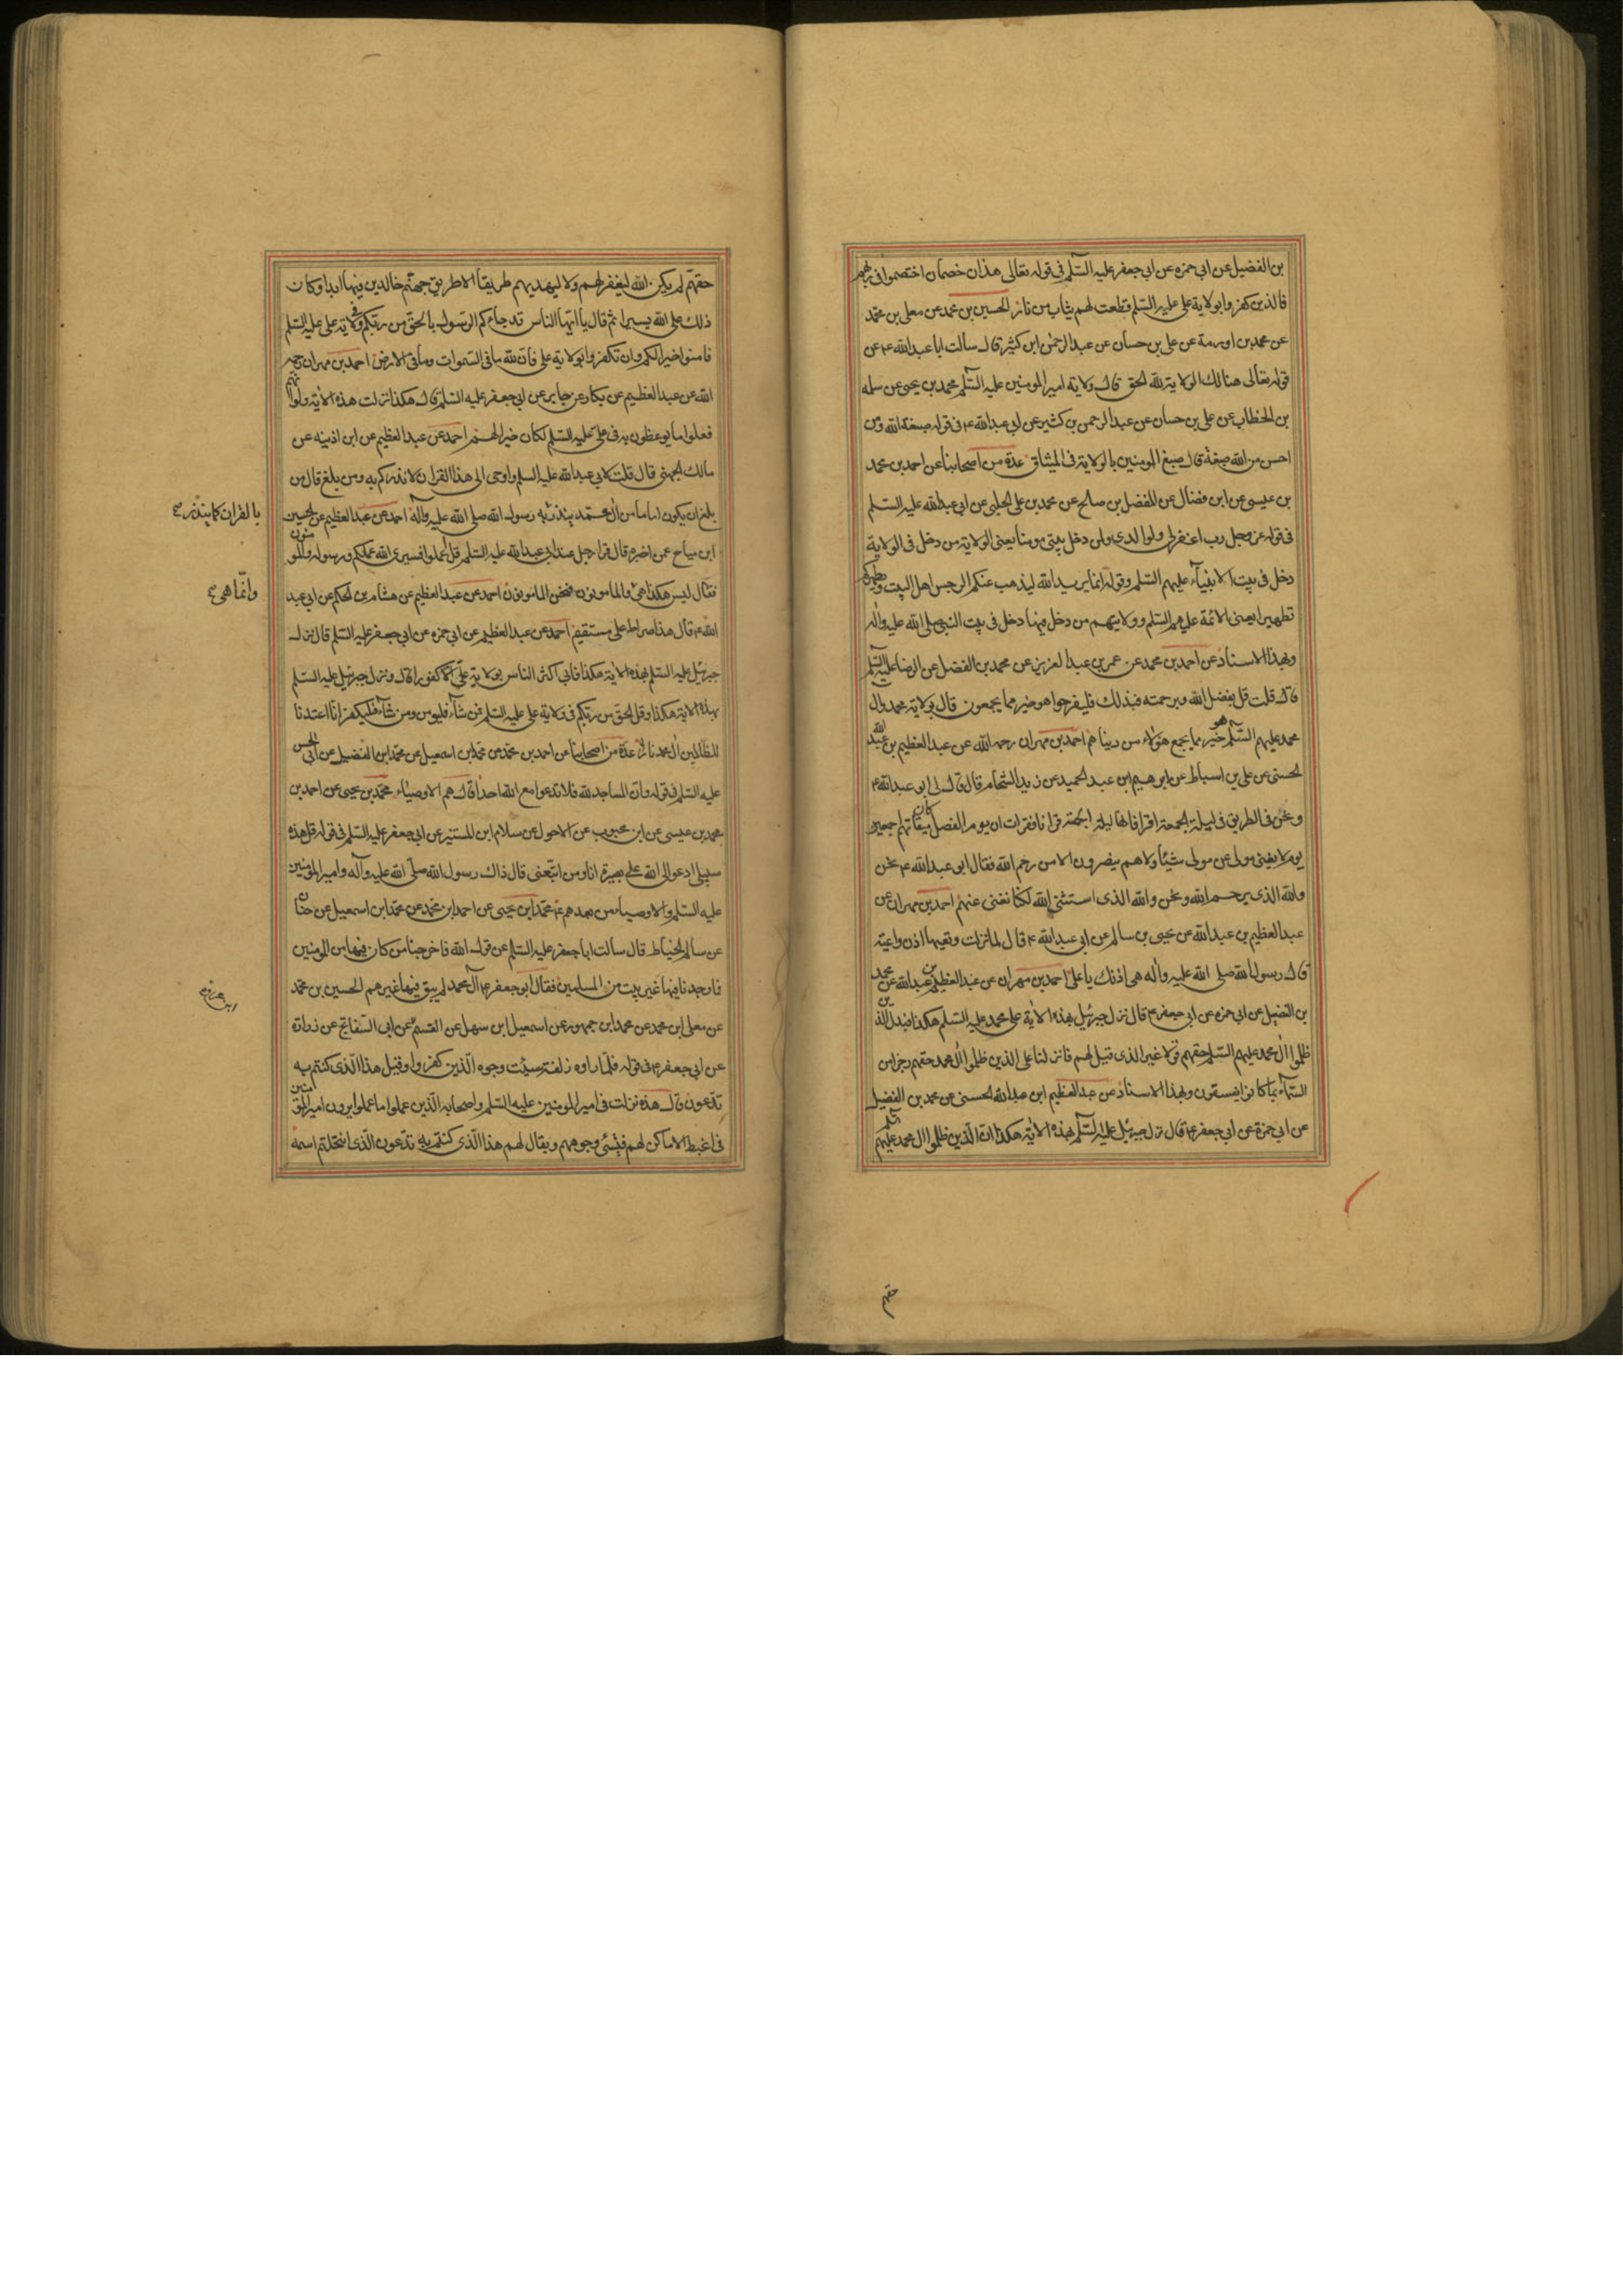 بن الفضيل عن ابى حمزه عن ابى جعفر عليه السّلم فى قوله تعالى هذان خصمان اختصموا فى ربهم
فالذين كفروا بولاية على عليه السّلم قطعت لهم ثياب من نار الحسين بن محمد عن معلى بن محمّد
عن محمد بن اورمة عن على بن حسان عن عبد الرحمن ابن كثير قال سالت ابا عبد الله ع عن
قوله تعالى هنالك الولاية لله الحق قال ولاية امير المومنين عليه السّلم محمد بن يحيى عن سلمه
بن الخطاب عن على بن حسان عن عبد الرحمن بن كثير عن ابى عبد الله ع فى قوله صبغة الله ومن
احسن من الله صبغة قال صبغ المومنين بالولاية فى الميثاق عدة من اصحابنا عن احمد بن محمد
بن عيسى عن ابن فضال عن المفضل بن صالح عن محمد بن على الحلبى عن ابى عبد الله عليه السّلم
فى قوله عز وجل رب اغفر لى ولوالدى ولمن دخل بيتى مومنا يعنى الولاية من دخل فى الولاية
دخل فى بيت الانبياء عليهم السّلم وقوله انما يريد الله ليذهب عنكم الرجس اهل البيت ويطهركم
تطهيرا يعنى الائمة عليهم السّلم وولايتهم من دخل فيها دخل فى بيت النبى صلى الله عليه واله
وبهذا الاسناد عن احمد بن محمد عن عمر بن عبد العزيز عن محمد بن الفضل عن الرضا عليه السّلم
قال قلت قل بفضل الله وبرحمته فبذلك فليفرحوا هو خير مما يجمعون قال بولاية محمد وال
محمد عليهم السّلم هو خير مما يجمع هؤلاء من دنياهم احمد بن مهران رحمه الله عن عبد العظيم بن عبد الله
الحسنى عن على بن اسباط عن ابرهيم ابن عبد الحميد عن زيد الشحام قال قال لى ابو عبد الله ع
ونحن فى الطريق فى ليلة الجمعة اقرا فانها ليلة الجمعة قرانا فقرات ان يوم الفصل كان ميقاتهم اجمعين
يوم لا يغنى مولى عن مولى شيئا ولا هم ينصرون الا من رحم الله فقال ابو عبد الله ع نحن
والله الذى يرحم الله ونحن والله الذى استثنى الله لكنا نغنى عنهم احمد بن مهران عن
عبد العظيم بن عبد الله عن يحيى بن سالم عن ابى عبد الله ع قال لما نزلت وتعيها اذن واعية
قال رسول الله صلى الله عليه واله هى اذنك يا على احمد بن مهران عن عبد العظيم بن عبد الله عن محمد
بن الفضيل عن ابى حمزه عن ابى جعفر ع قال نزل جبرئيل بهذه الاية على محمد عليه السّلم هكذا فبدل الذين
ظلموا ال محمد عليهم السّلم حقهم قولا غير الذى قيل لهم فانزلنا على الذين ظلموا ال محمد حقهم رجزا من
السّماء بما كانوا يفسقون وبهذا الاسناد عن عبد العظيم ابن عبد الله الحسنى عن محمد بن الفضيل
عن ابى حمزة عن ابى جعفر ع قال نزل جبرئيل عليه السّلم بهذه الاية هكذا ان الّذين ظلموا ال محمد عليهم السّلم
حقهم
حقهم لم يكن الله ليغفر لهم ولا ليهديهم طريقا الا طريق جهنّم خالدين فيها ابدا وكان
ذلك على الله يسيرا ثم قال يا ايّها الناس قد جاءكم الرّسول بالحقّ من ربّكم فى ولاية على عليه السّلم
فامنوا خيرا لكم وان تكفروا بولاية على فان لله ما فى السّموات وما فى الارض احمد بن مهران رحمه
الله عن عبد العظيم عن بكار عن جابر عن ابى جعفر عليه السّلم قال هكذا نزلت هذه الاية ولو انّهم
فعلوا ما يوعظون به فى علىّ عليه السّلم لكان خيرا لهم احمد عن عبد العظيم عن ابن اذينه عن
مالك الجهنى قال قلت لابى عبد الله عليه السّلم واوحى الى هذا القران لانذركم به ومن بلغ قال من
بلغ ان يكون اماما من ال محمد ينذر به رسول الله صلى الله عليه وآله احمد عن عبد العظيم عن الحسين
بالقران كما ينذر
ابن مياح عمن اخبره قال قرا رجل عند ابى عبد الله عليه السّلم قل اعملوا فسيرى الله عملكم ورسوله والمومنون
فقال ليس هكذا هى والمامونون فنحن المامونون احمد عن عبد العظيم عن هشام بن الحكم عن ابى عبد
وانّما هى
الله ع قال هذا صراط على مستقيم احمد عن عبد العظيم عن ابى حمزه عن ابى جعفر عليه السّلم قال نزل
جبرئيل عليه السّلم بهذه الاية هكذا فابى اكثر الناس بولاية علىّ الا كفورا قال ونزل جبرئيل عليه السّلم
بهذه الاية هكذا وقل الحق من ربّكم فى ولاية على عليه السّلم فمن شاء فليومن ومن شاء فليكفر انا اعتدنا
للظالمين ال محمد نارا عدّة من اصحابنا عن احمد بن محمّد عن محمّد ابن اسمعيل عن محمّد ابن الفضيل عن ابى الحسن
عليه السّلم فى قوله وان المساجد لله فلا تدعوا مع الله احدا قال هم الاوصياء محمّد بن يحيى عن احمد بن
محمد بن عيسى عن ابن محبوب عن الاحول عن سلام ابن المستنير عن ابى جعفر عليه السّلم فى قوله قل هذه
سبيلى ادعو الى الله على بصيرة انا ومن اتّبعنى قال ذاك رسول الله صلّى الله عليه وآله وامير المومنين
عليه السّلم والاوصياء من بعدهم ع محمّد ابن يحيى عن احمد ابن محمّد عن محمّد ابن اسمعيل عن حنان
عن سالم الحنياط قال سالت ابا جعفر عليه السّلم عن قول الله فاخرجنا من كان فيها من المومنين
فما وجدنا فيها غير بيت من المسلمين فقال ابو جعفر ع آل محمد لم يبق فيها غيرهم الحسين بن محمّد
عن معلى ابن محمد عن محمد ابن جمهور عن اسمعيل ابن سهل عن القسم عن ابى السّفاتج عن زرارة
عن ابى جعفر ع فى قوله فلمّا راوه زلفة سيئت وجوه الّذين كفروا وقيل هذا الّذى كنتم به
تدّعون قال هذه نزلت فى امير المومنين عليه السّلم واصحابه الّذين عملوا ما عملوا يرون امير المومنين
فى اغبط الاماكن لهم فيسئ وجوههم ويقال لهم هذا الّذى كنتم به تدّعون الّذى انتحلتم اسمه